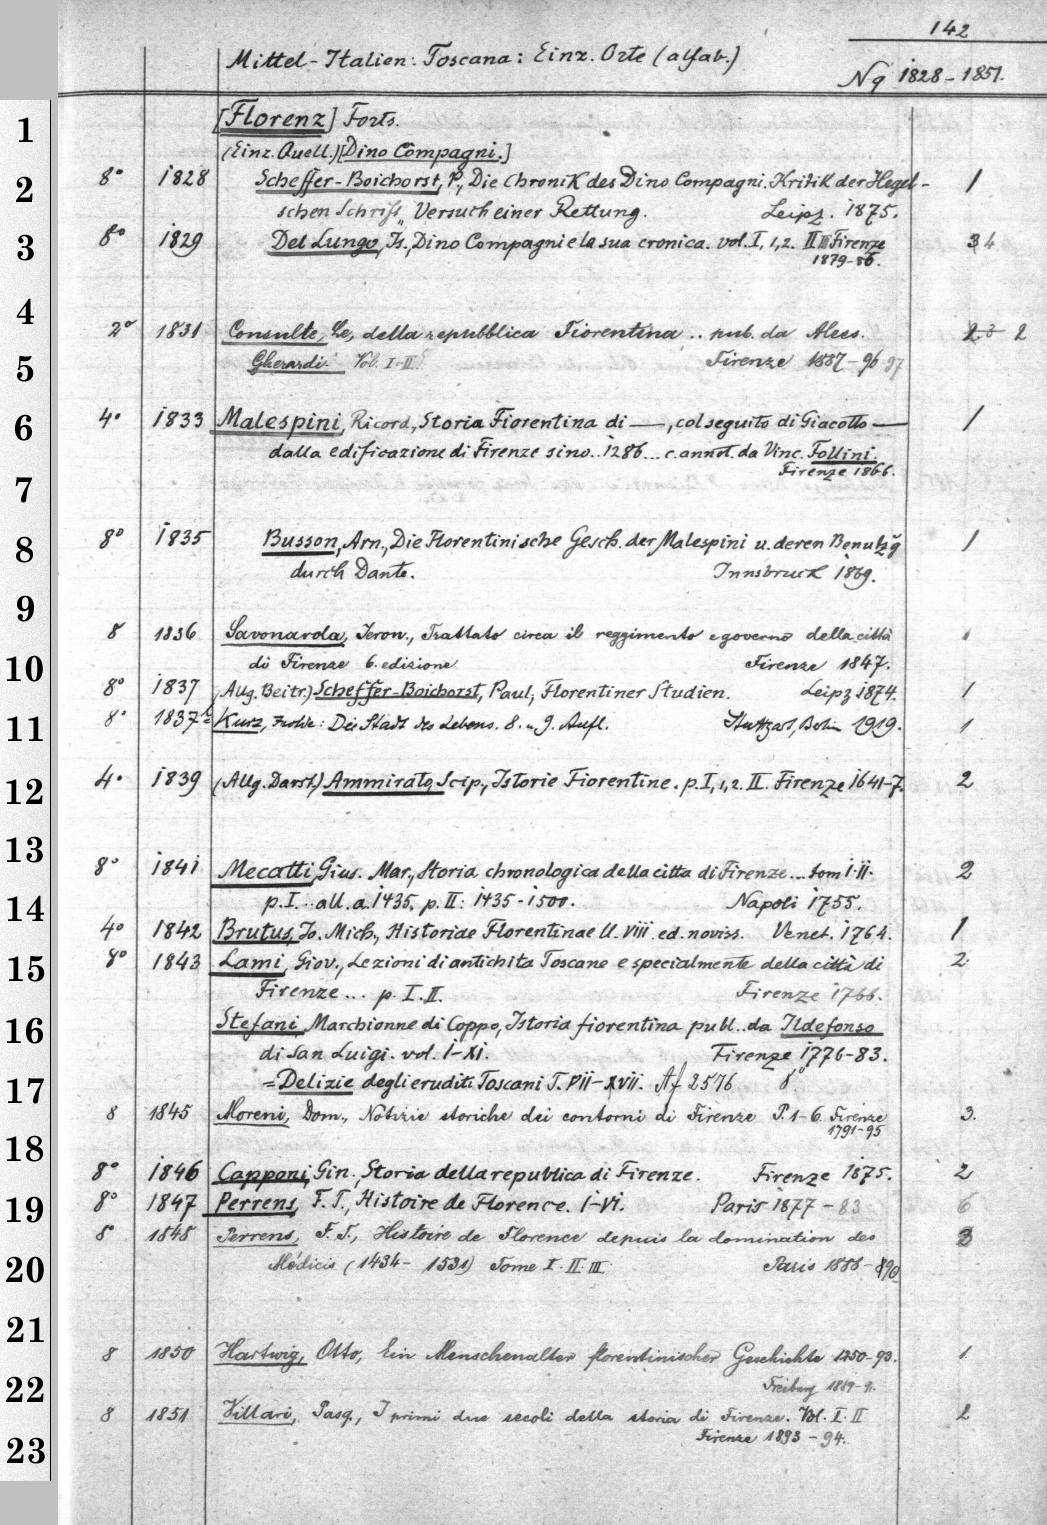 142
Mittel-Italien: Toscana: Einz. Orte (alfab.)
Nq 1828-1851.
1
[Florenz] Forts.
(Einz. Quell.) [Dino Compagni.]
2
8° 1828 Scheffer-Boichorst, P., Die Chronik des Dino Compagni. Kritik der Hegel- 1
schen Schrift „Versuch einer Rettung. Leipz. 1875.
3
8° 1829 Del Lungo, Is., Dino Compagni e la sua cronica. vol. I, 1,2. II III Firenze 34
1879-86.
4
2° 1831 Consulte, Le, della repubblica Fiorentina .. pub. da Aless. 2
5
Gherardi. Vol. I-II. Firenze 1887-96-97
6
4° 1833 Malespini, Ricord., Storia Fiorentina di —, col seguito di Giacotto — 1
dalla edificazione di Firenze sino..1286... c. annot. da Vinc. Follini.
Firenze 1866.
7
8
8° 1835 Busson, Arn., Die Florentinische Gesch. der Malespini u. deren Benutzg 1
durch Dante. Innsbruck 1869.
9
8 1836 Savonarola, Ieron., Trattato circa il reggimento e governo della città 1
10
di Firenze 6. edizione Firenze 1847.
8° 1837 (Allg. Beitr.) Scheffer-Boichorst, Paul, Florentiner Studien. Leipz 1874. 1
11
8° 1837b Kurz, Isolde: Die Stadt des Lebens. 8. u. 9. Aufl. Stuttgart, Berlin 1919. 1
12
4° 1839 (Allg. Darst.) Ammirato, Scip., Istorie Fiorentine. p. I, 1, 2. II. Firenze 1641-7. 2
13
8° 1841 Mecatti, Gius. Mar., Storia chronologica della citta di Firenze... tom I-II. 2
14
p. I... all. a. 1435. p. II: 1435-1500. Napoli 1755.
4° 1842 Brutus, Jo. Mich., Historiae Florentinae ll. VIII ed. noviss. Venet. 1764. 1
15
8° 1843 Lami, Giov., Lezioni di antichita Toscane e specialmente della città di 2
Firenze... p. I. II. Firenze 1766.
16
Stefani, Marchionne di Coppo, Istoria fiorentina publ. da Ildefonso
di San Luigi. vol. I-XI. Firenze 1776-83.
17
=Delizie degli eruditi Toscani T. VII-XVII. Af 2576 8°
8 1845 Moreni, Dom., Notizie storiche dei contorni di Firenze P. 1-6. Firenze 3.
1791-95
18
8° 1846 Capponi, Gin., Storia della republica di Firenze. Firenze 1875. 2
19
8° 1847 Perrens, F. T., Histoire de Florence. I-VI. Paris 1877-83 6
8° 1848 Perrens, F. T., Histoire de Florence depuis la domination des 3
20
Médicis (1434-1531) Tome I. II. III Paris 1888-890
21
8 1850 Hartwig, Otto, Ein Menschenalter florentinischer Geschichte 1250-93. 1
22
Freiburg 1889-91.
8 1851 Villari, Pasq., I primi due secoli della storia di Firenze. Vol. I. II 2
23
Firenze 1893-94.